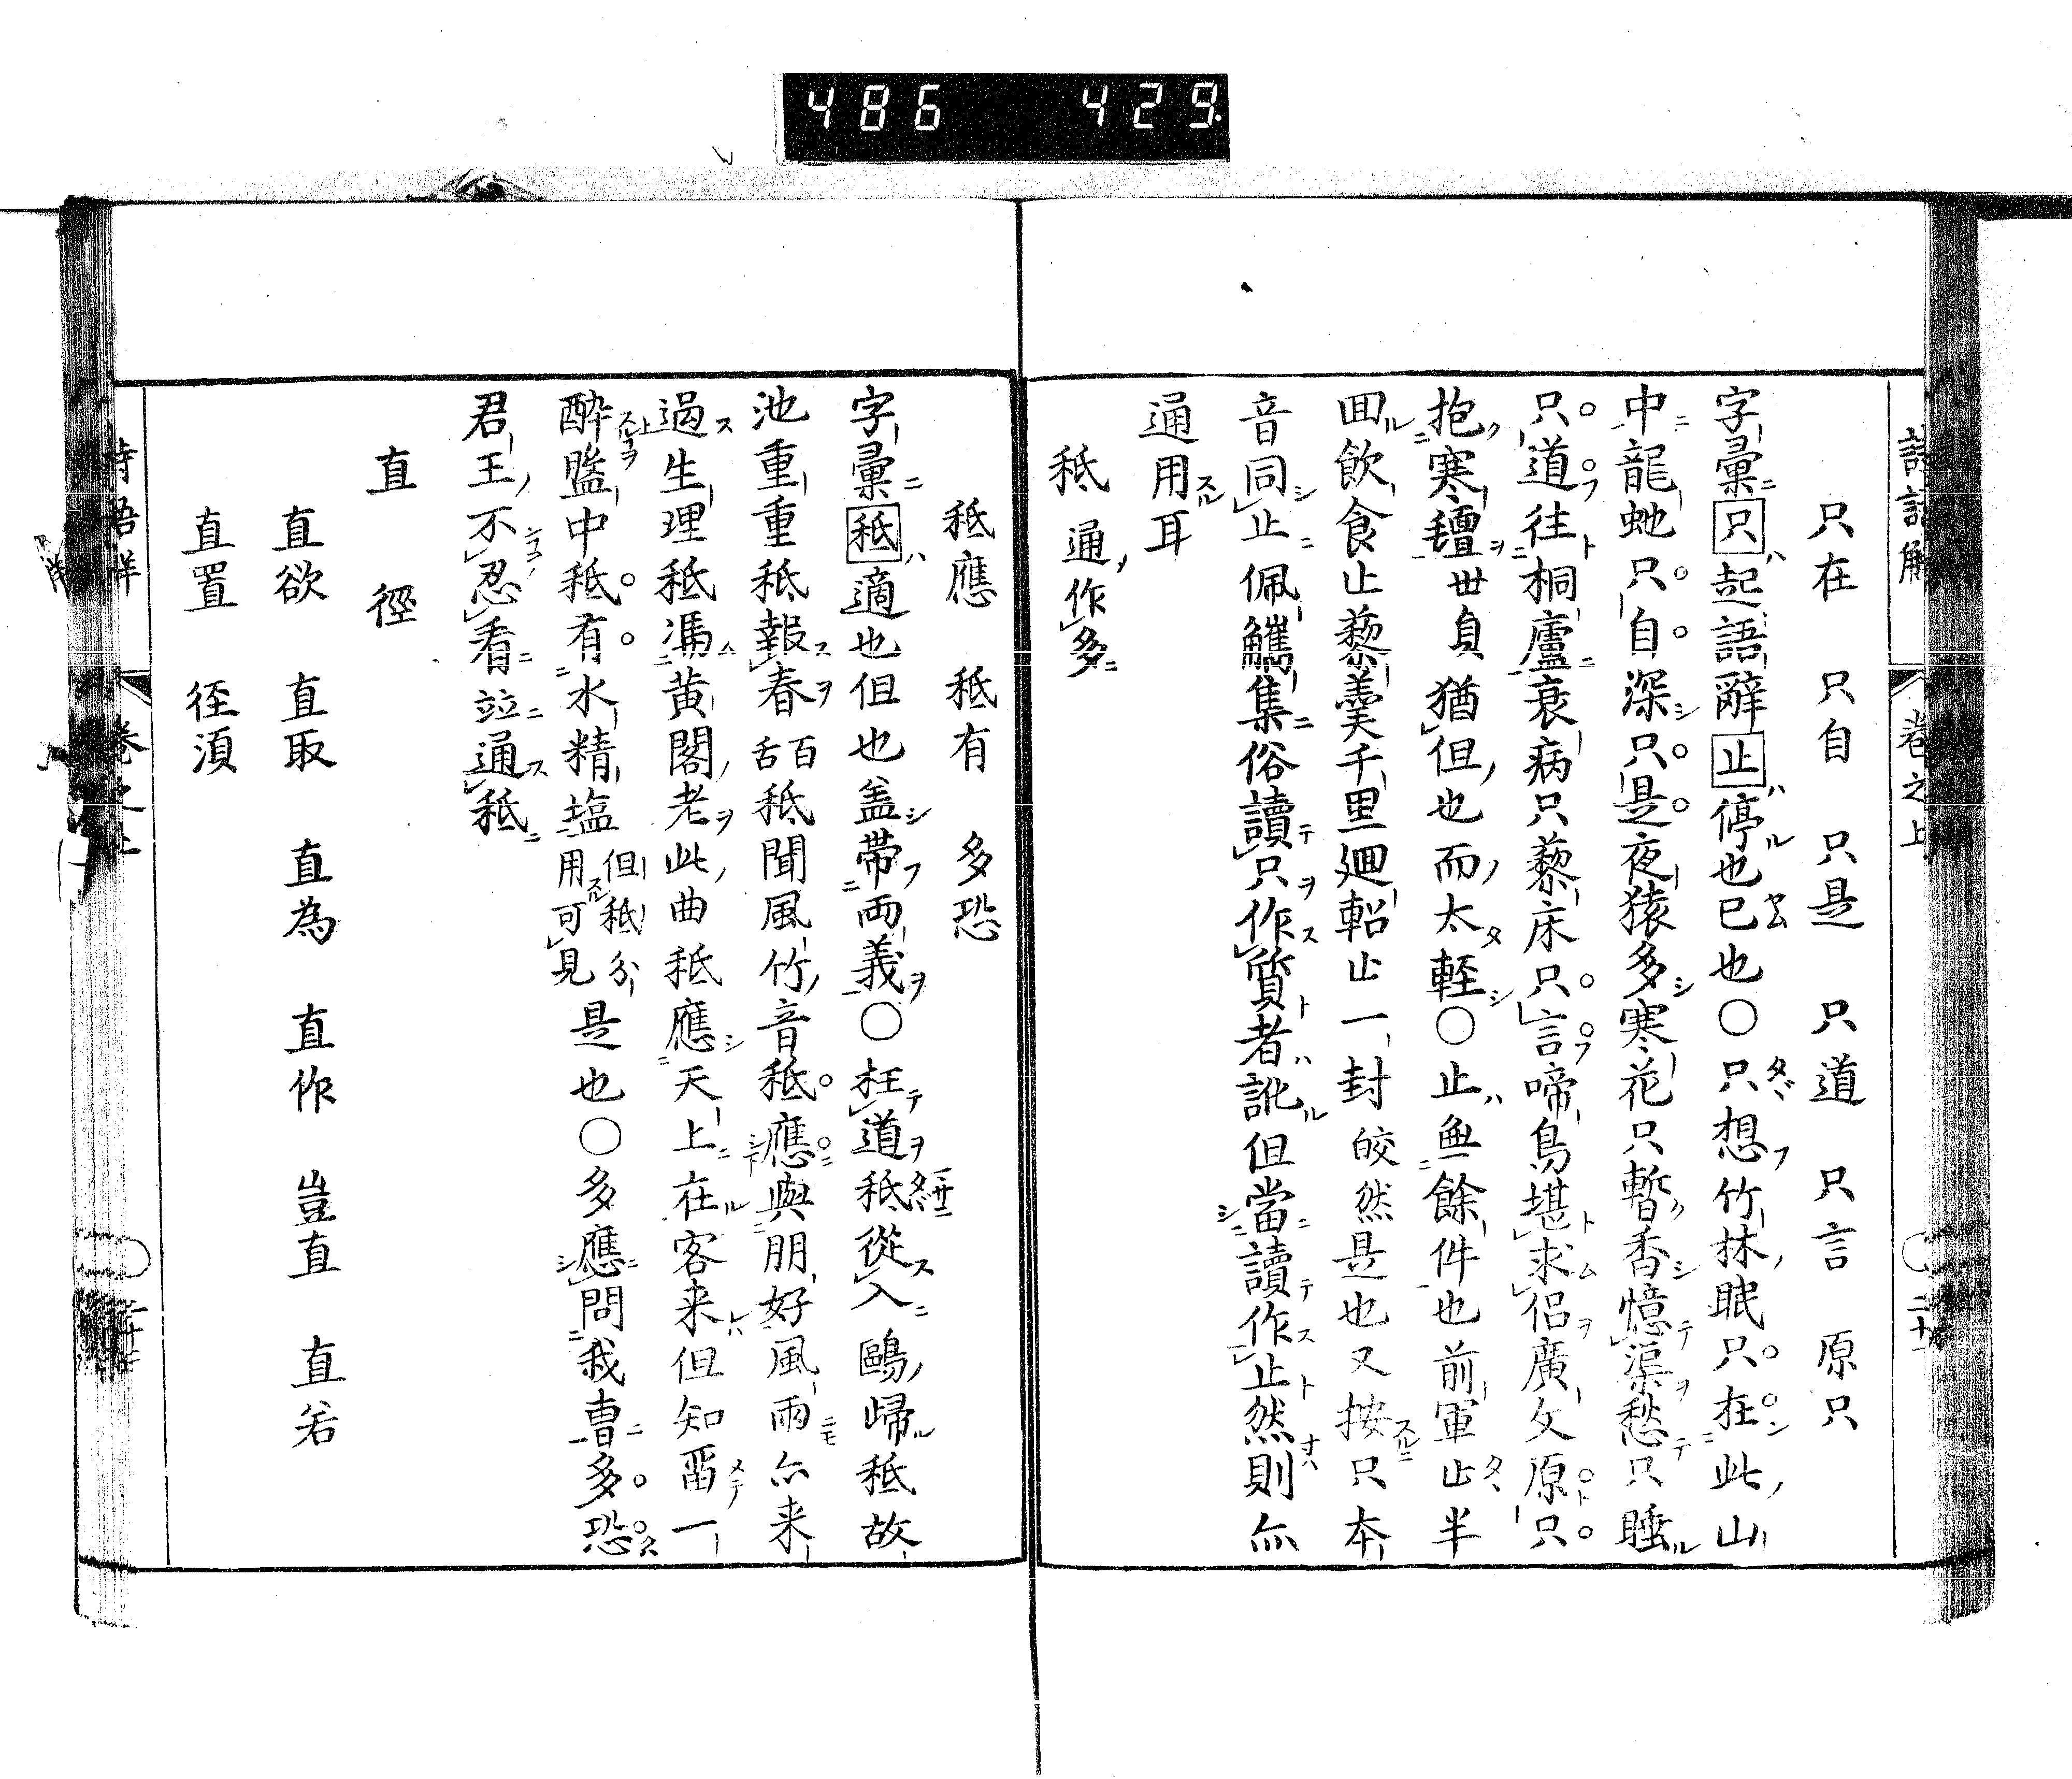 486 429
詩語解 卷之上 二十
只在 只自 只是 只道 只言 原只
字彙只起語辭止停也已也○只想竹林眠只在此山
中龍虵只自深只是夜猿多寒花只暫香憶渠愁只睡
只道往桐廬衰病只藜床只言啼鳥堪求侶廣文原只
抱寒氊丗負猶但也而太軽○止無餘件也前軍止半
囬飲食止藜羹千里廻軺止一封皎然是也又按只本
音同止佩觿集俗讀只作質者訛但當讀作止然則亦
通用耳
秪通作多
秪應 秪有 多恐
字彙秪適也但也盖帶兩義○枉道秪從入鷗歸秪故
池重重秪報春百舌秪聞風竹音秪應與朋好風雨亦来
過生理秪馮黄閣老此曲秪應天上在客来但知畱一
酔盬中秪有水精塩但秪分用可見是也○多應問我曺多恐
君王不忍看竝通秪
直 徑
直欲 直取 直為 直作 豈直 直若
直置 径湏
詩語解 卷之上